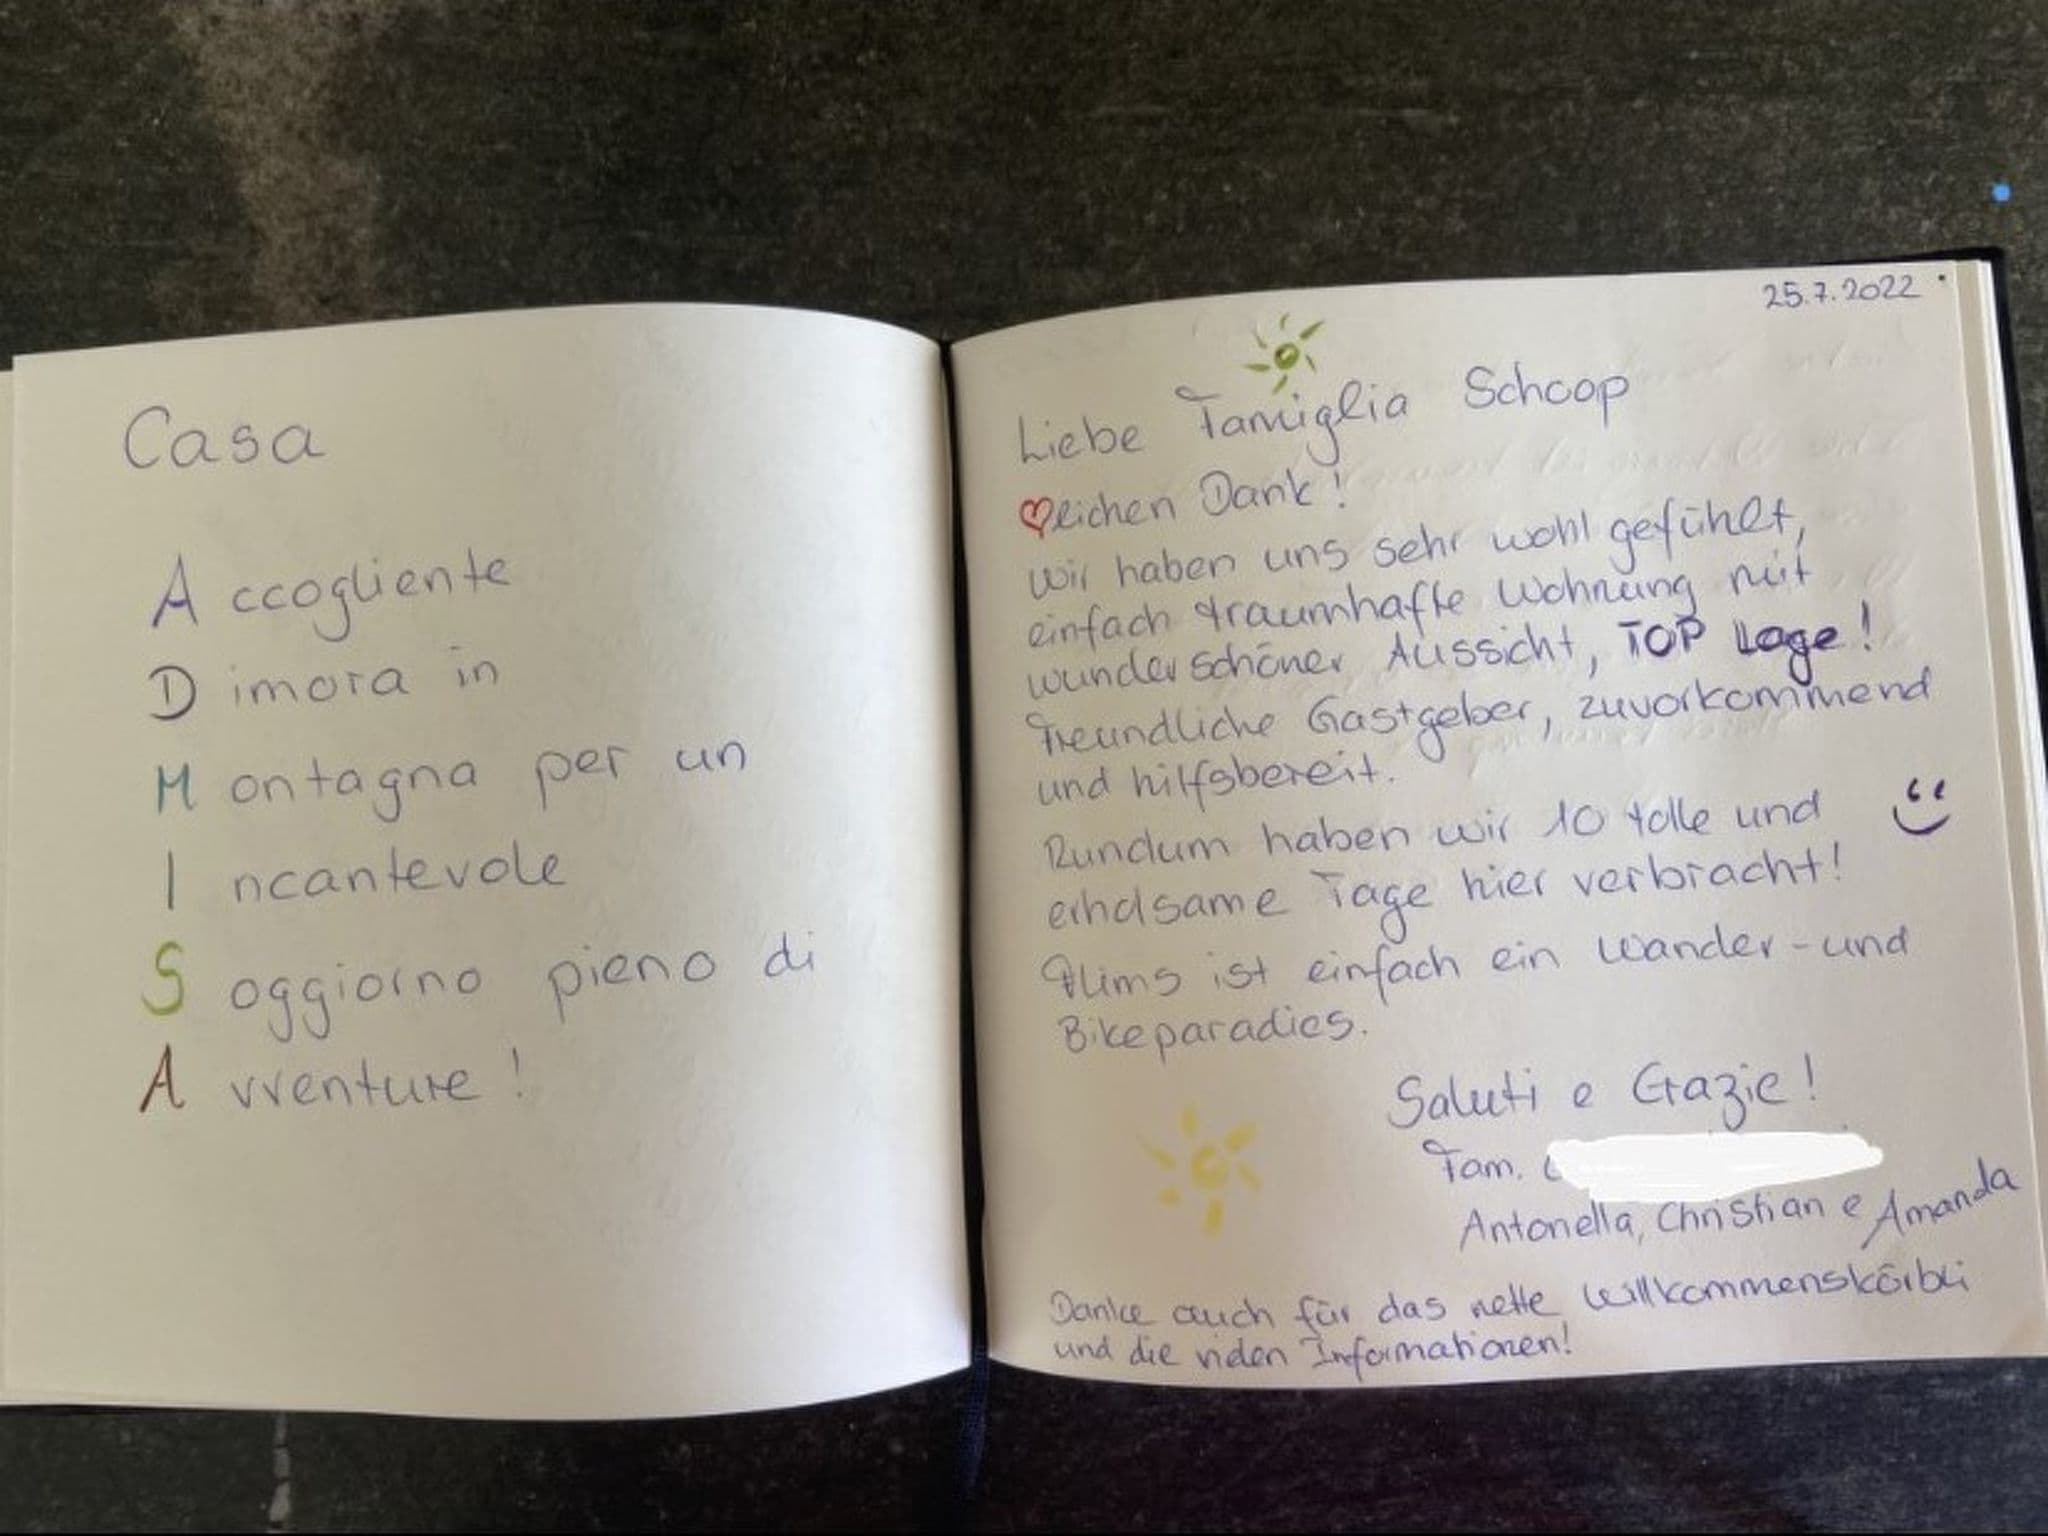 Casa
Accogliente
Dimora in
Montagna per un
Incantevole
Soggiorno pieno di
Avventure!
25.7.2022
Liebe Famiglia Schoop
♥lichen Dank!
Wir haben uns sehr wohl gefühlt,
einfach traumhafte Wohnung mit
wunderschöner Aussicht, TOP Lage!
Freundliche Gastgeber, zuvorkommend
und hilfsbereit.
Rundum haben wir 10 tolle und
erholsame Tage hier verbracht!
Flims ist einfach ein Wander-und
Bikeparadies.
Saluti e Grazie!
Fam.
Antonella, Christian e Amanda
Danke auch für das nette Willkommenskörbli
und die vielen Informationen!